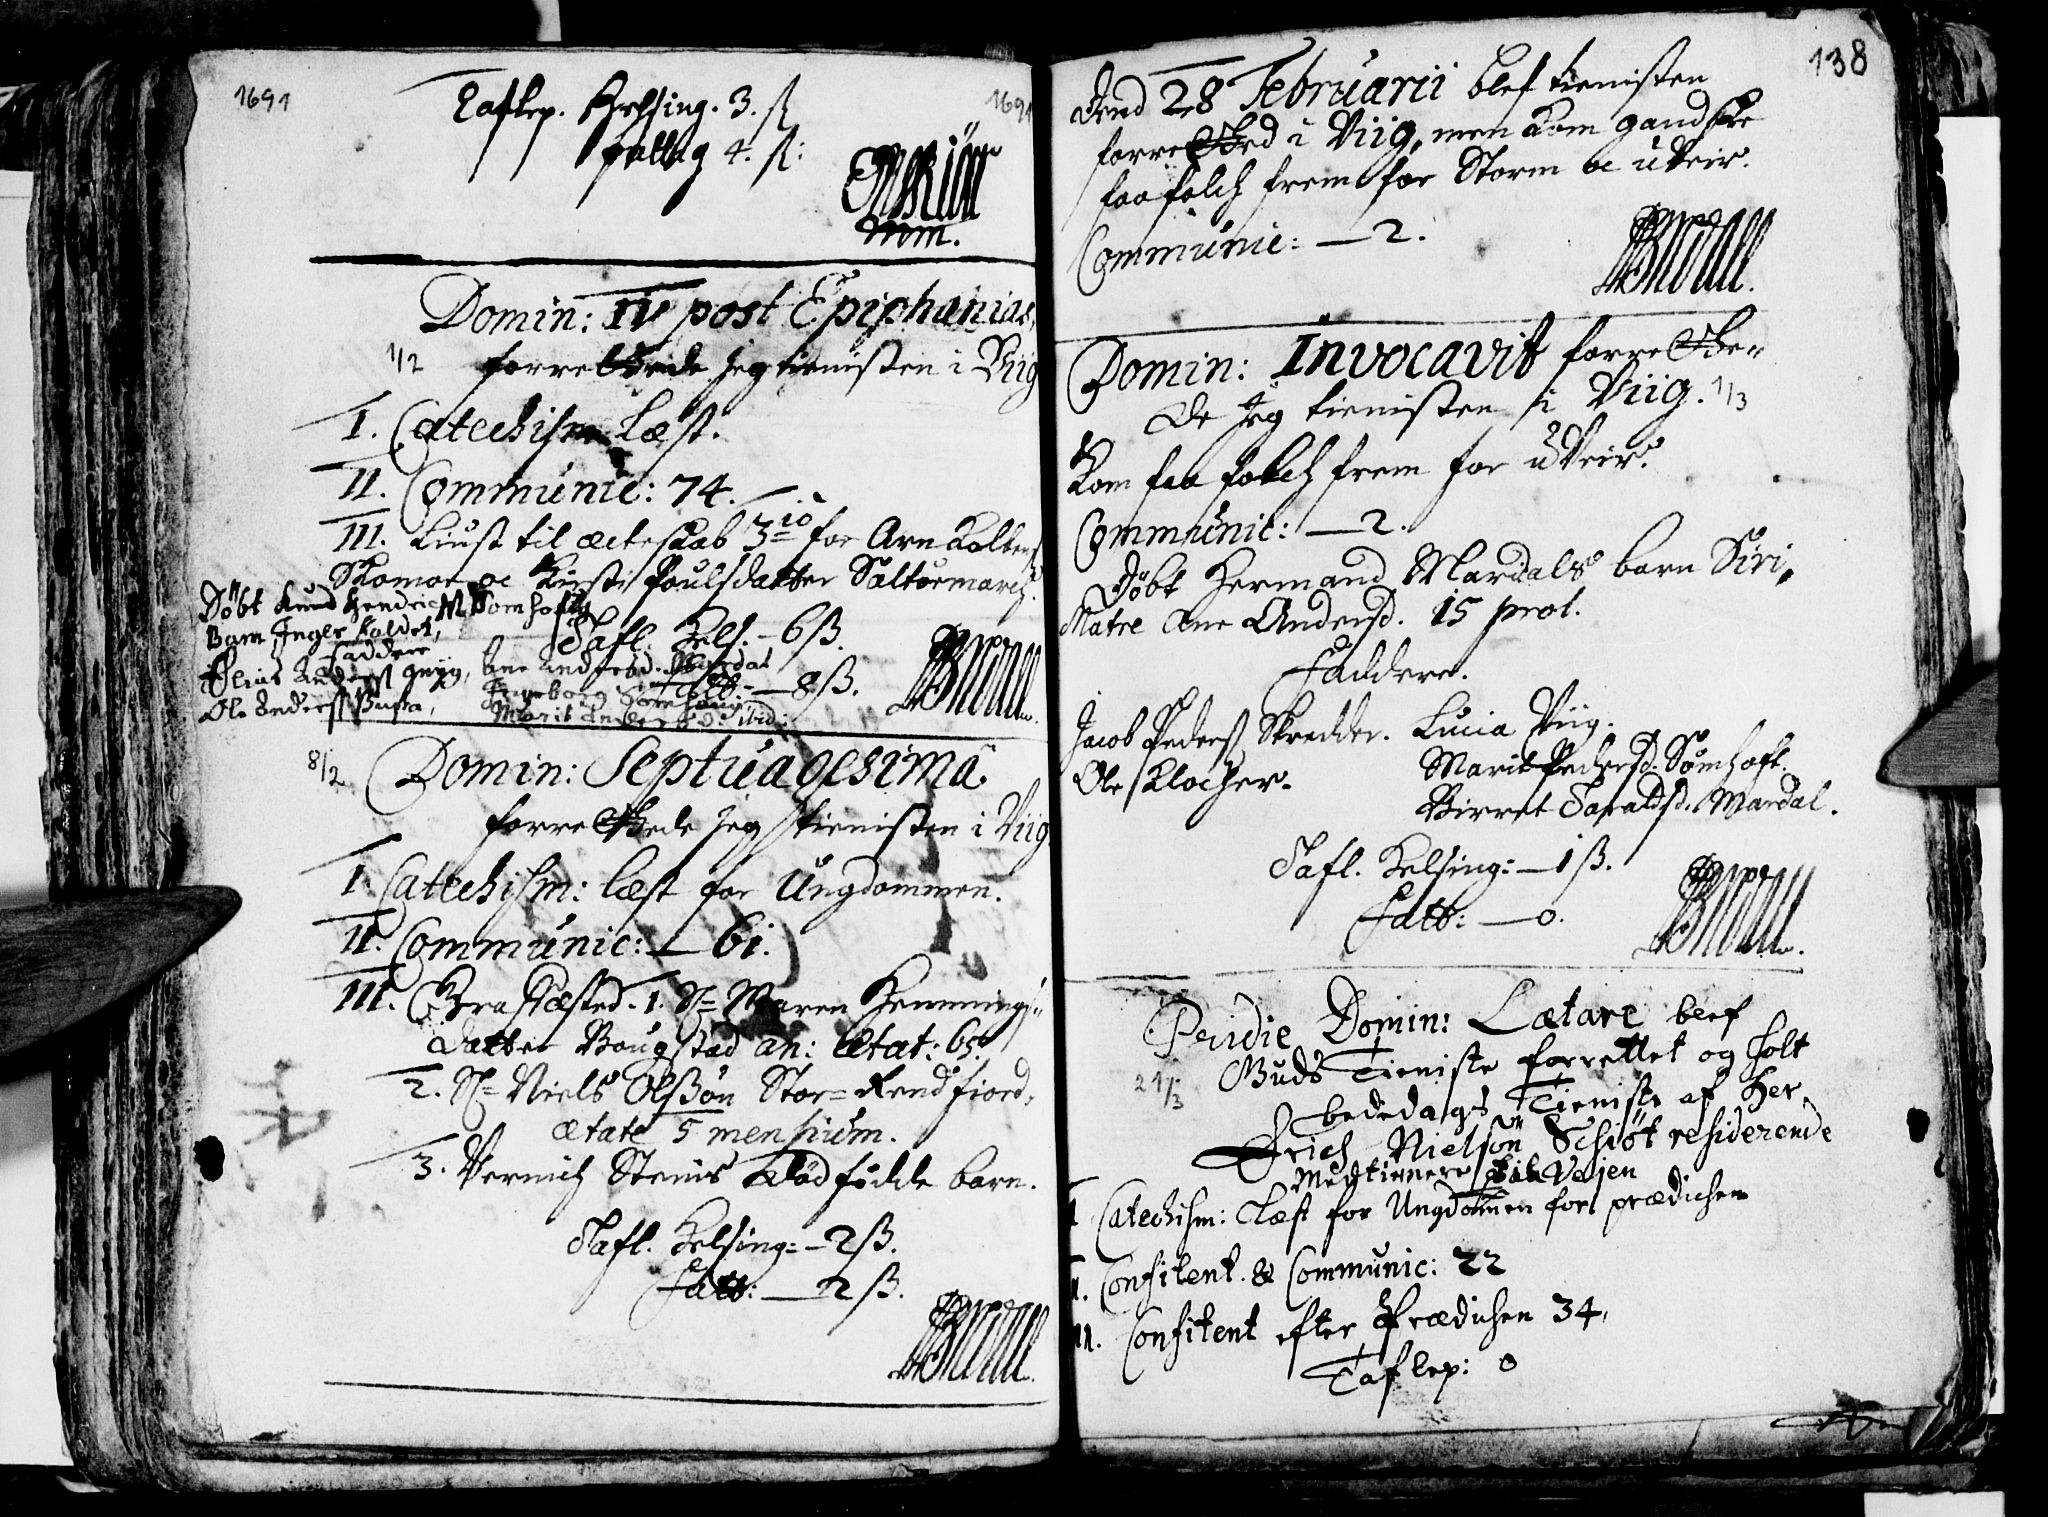 1691
1691
Taflep. Helsing. 3. ß
fattig 4. ß:
mm.
Domin: IV post Epiphanias,
1/2 forrettede jeg tienisten i Viig
I. Catechism læst.
II. Communic: 74.
III. Liust til ecteskab 3 io for Arn
Skomar oc Kirsti Poulsdatter Saltuermarch.
Døbt Knud Hendrichs Somhofs
Barn Inger kaldet,
Faddere
Anders Ane Andersd. Mardal
Ole Anders Ingeborg
Marit Anders d. ibid:
Tafl. Hels. - 6 ß.
Fatt: - 8 ß.
8/2 Domin: Septuagesima
forrettede jeg tienisten i Viig
I. Catechism: læst for Ungdommen.
II. Communic: — 61.
III. Graffæsted. 1. Sl= Maren Hemmings=
datter Bougstad an: ætat: 65.
2. Sl= Niels Olssøn Stor=Rendfiord,
ætate 5 mensium.
3. Stenis dødfødde barn.
Tafl. Helsing: - 2 ß.
Fatt: — 2 ß.
138
Dend 28 Februarii blef tienisten
forretted i Viig, men kom gandske
faa folch frem for Storm oc uVeir.
Communic: — 2.
Domin: Invocavit forrette-
de jeg tienisten i Viig. 1/3
Kom faa folch frem for uVeir.
Communic: — 2.
Døbt Hermand Mardals barn Siri,
Matre Ane Andersd. 15 prol.
Faddere.
Jacob Peders Skredder. Lucia Viig.
Ole Klocher. Marit Pedersd. Sømhoft.
Birret Haraldsd. Mardal.
Tafl. Helsing: — 1 ß.
Fatt: — 0.
Pridie Domin: Lætare blef
21/3 Guds Tieniste forrettet og holt
bededags Tieniste af Her
Erich Nielsøn Schiøt residerende
Medtiener til Vejen
I Catechism: læst for Ungdommen for prædichen
II. Confitent. & Communic: 22
III. Confitent efter Prædichen 34,
Taflep: 0